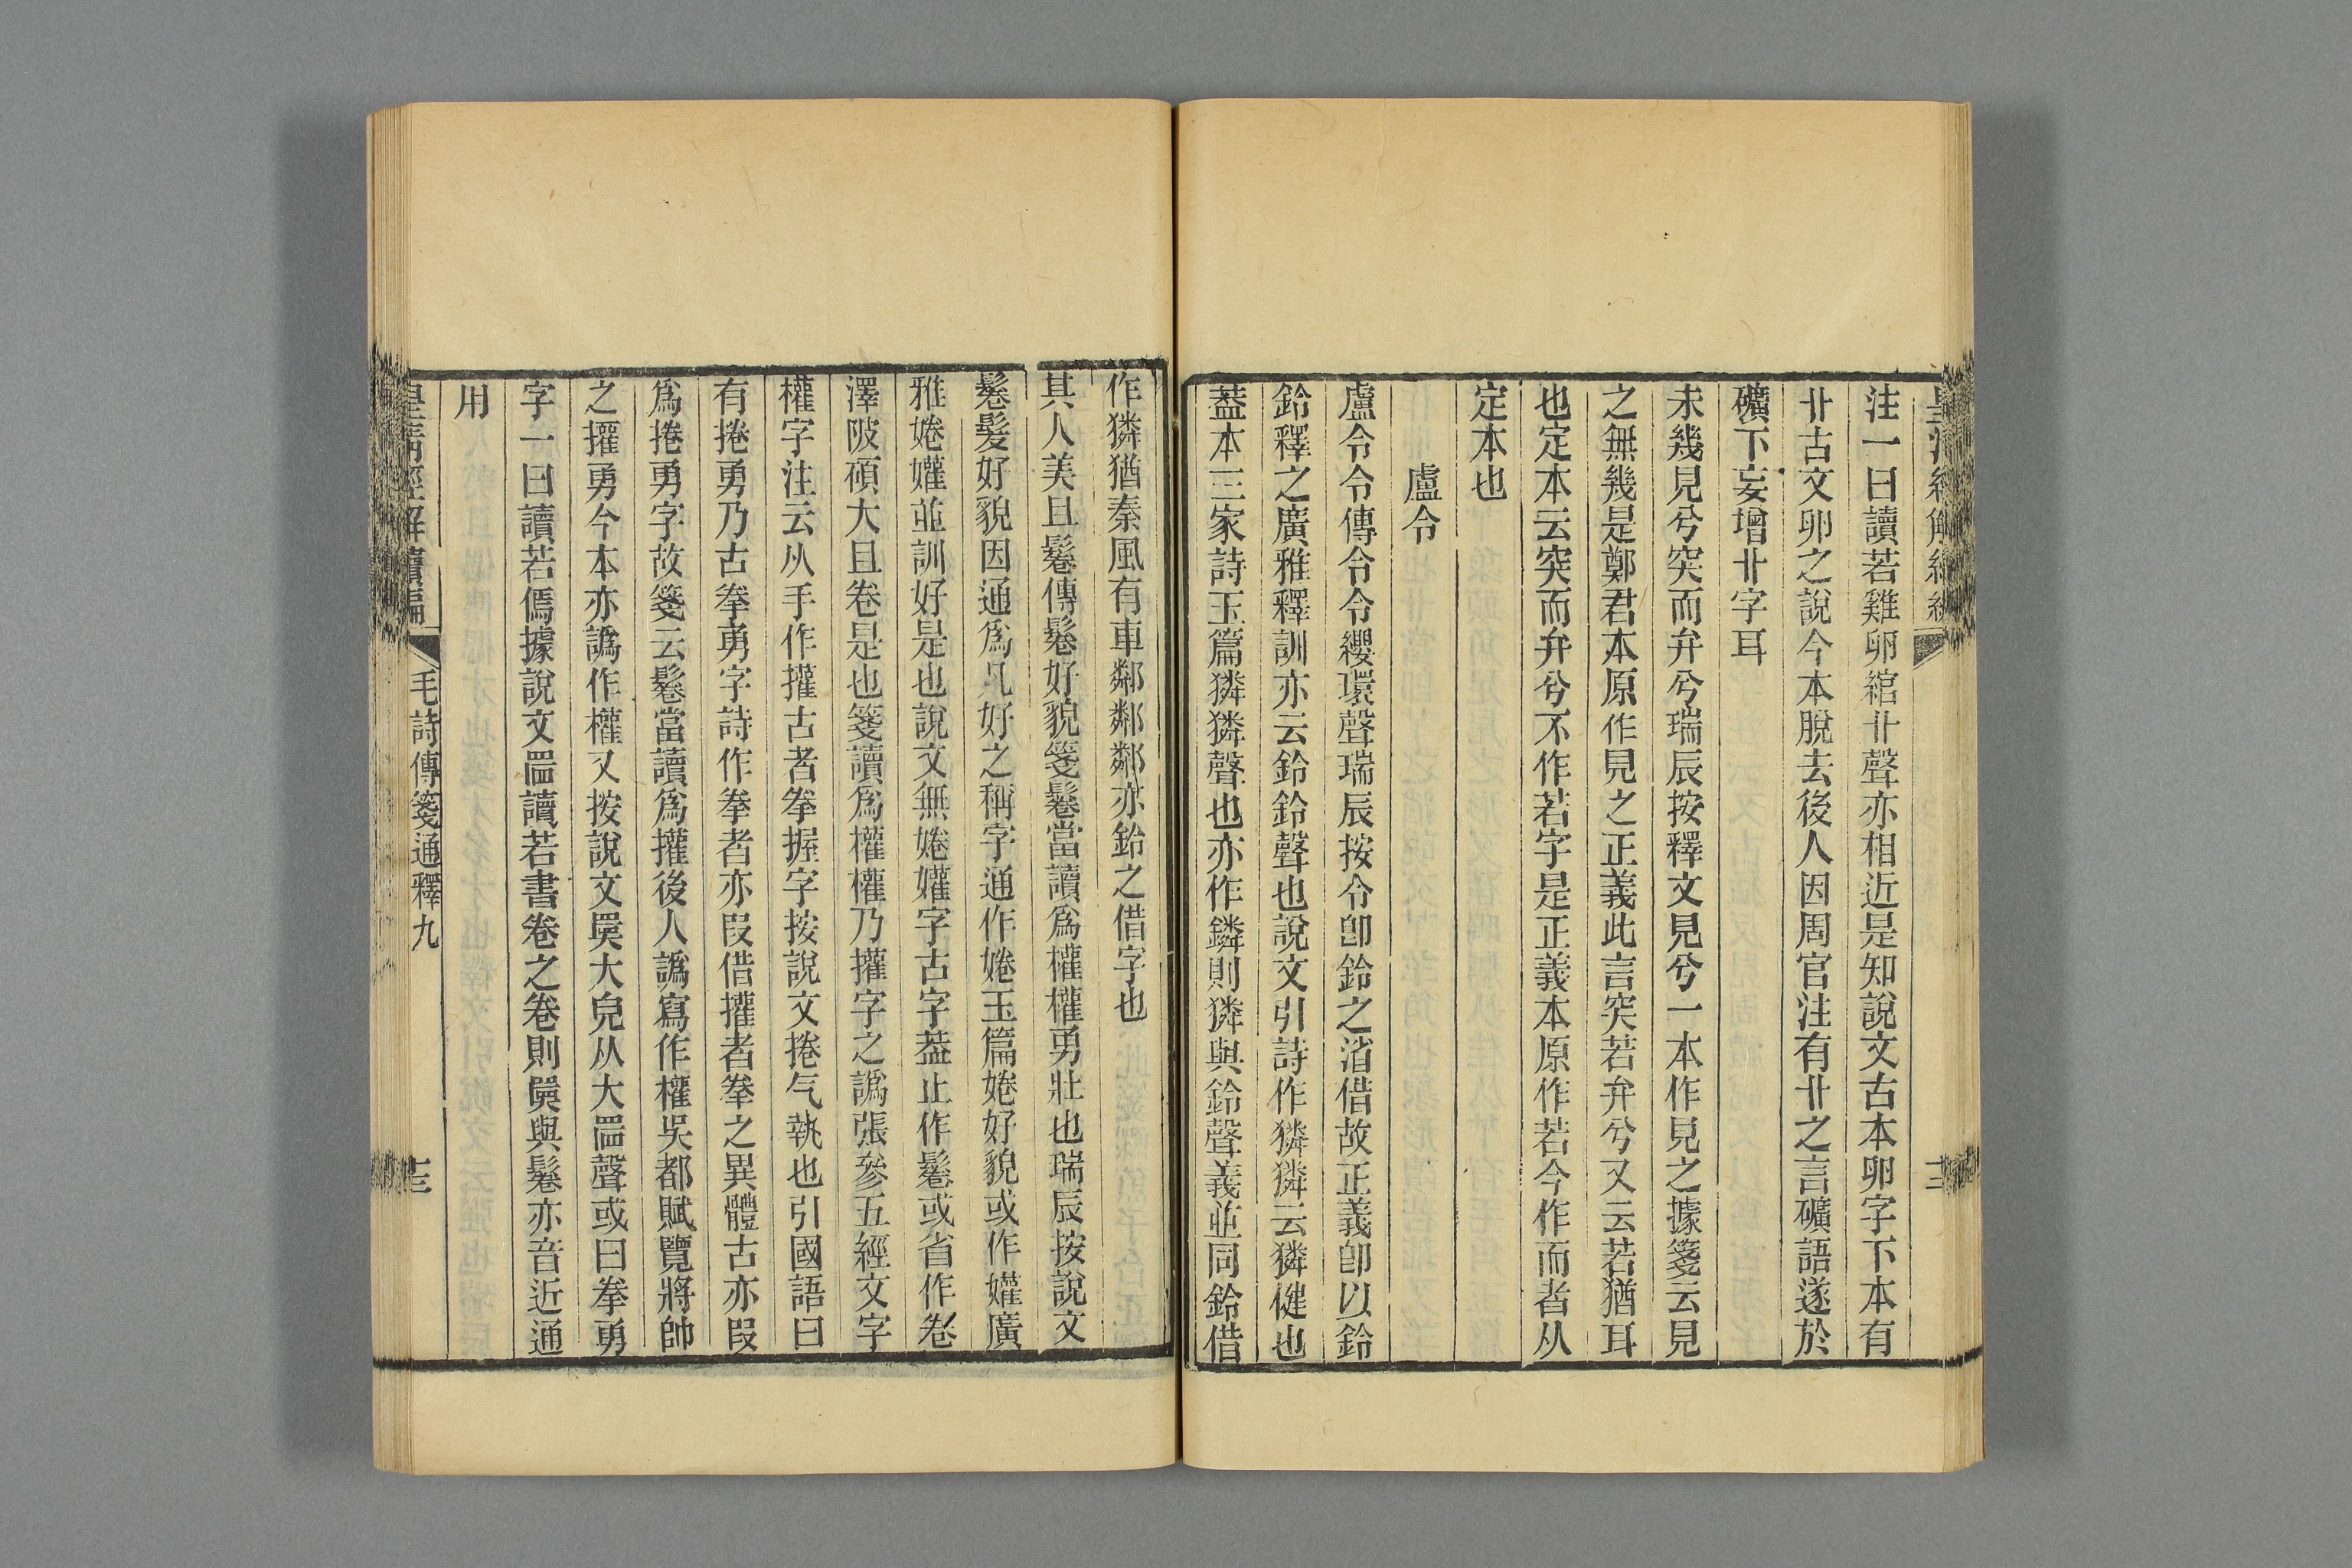 注一曰讀若雞卵綰卝聲亦相近是知說文古本卵字下本有
卝古文卵之說今本脫去後人因周官注有卝之言礦語遂於
礦下妄增卝字耳
未幾見兮突而弁兮瑞辰按釋文見兮一本作見之據箋云見
之無幾是鄭君本原作見之正義此言突若弁兮又云若猶耳
也定本云突而弁兮不作若字是正義本原作若今作而者从
定本也
盧令
盧令令傳令令纓環聲瑞辰按令卽鈴之渻借故正義卽以鈴
鈴釋之廣雅釋訓亦云鈴鈴聲也說文引詩作獜獜云獜健也
葢本三家詩玉篇獜獜聲也亦作鏻則獜與鈴聲義並同鈴借
作獜猶秦風有車鄰鄰鄰亦鈴之借字也
其人美且鬈傳鬈好貌箋鬈當讀爲權權勇壯也瑞辰按說文
鬈髮好貌因通爲凡好之稱字通作婘玉篇婘好貌或作孉廣
雅婘孉並訓好是也說文無婘孉字古字葢止作鬈或省作卷
澤陂碩大且卷是也箋讀爲權權乃攉字之譌張參五經文字
權字注云从手作攉古者拳握字按說文捲气埶也引國語曰
有捲勇乃古拳勇字詩作拳者亦叚借攉者拳之異體古亦叚
爲捲勇字故箋云鬈當讀爲攉後人譌寫作權吳都賦覽將帥
之攉勇今本亦譌作權又按說文奰大皃从大㗊聲或曰拳勇
字一曰讀若傿據說文㗊讀若書卷之卷則奰與鬈亦音近通
用
皇淸經解續編
毛詩傳箋通釋九
十三